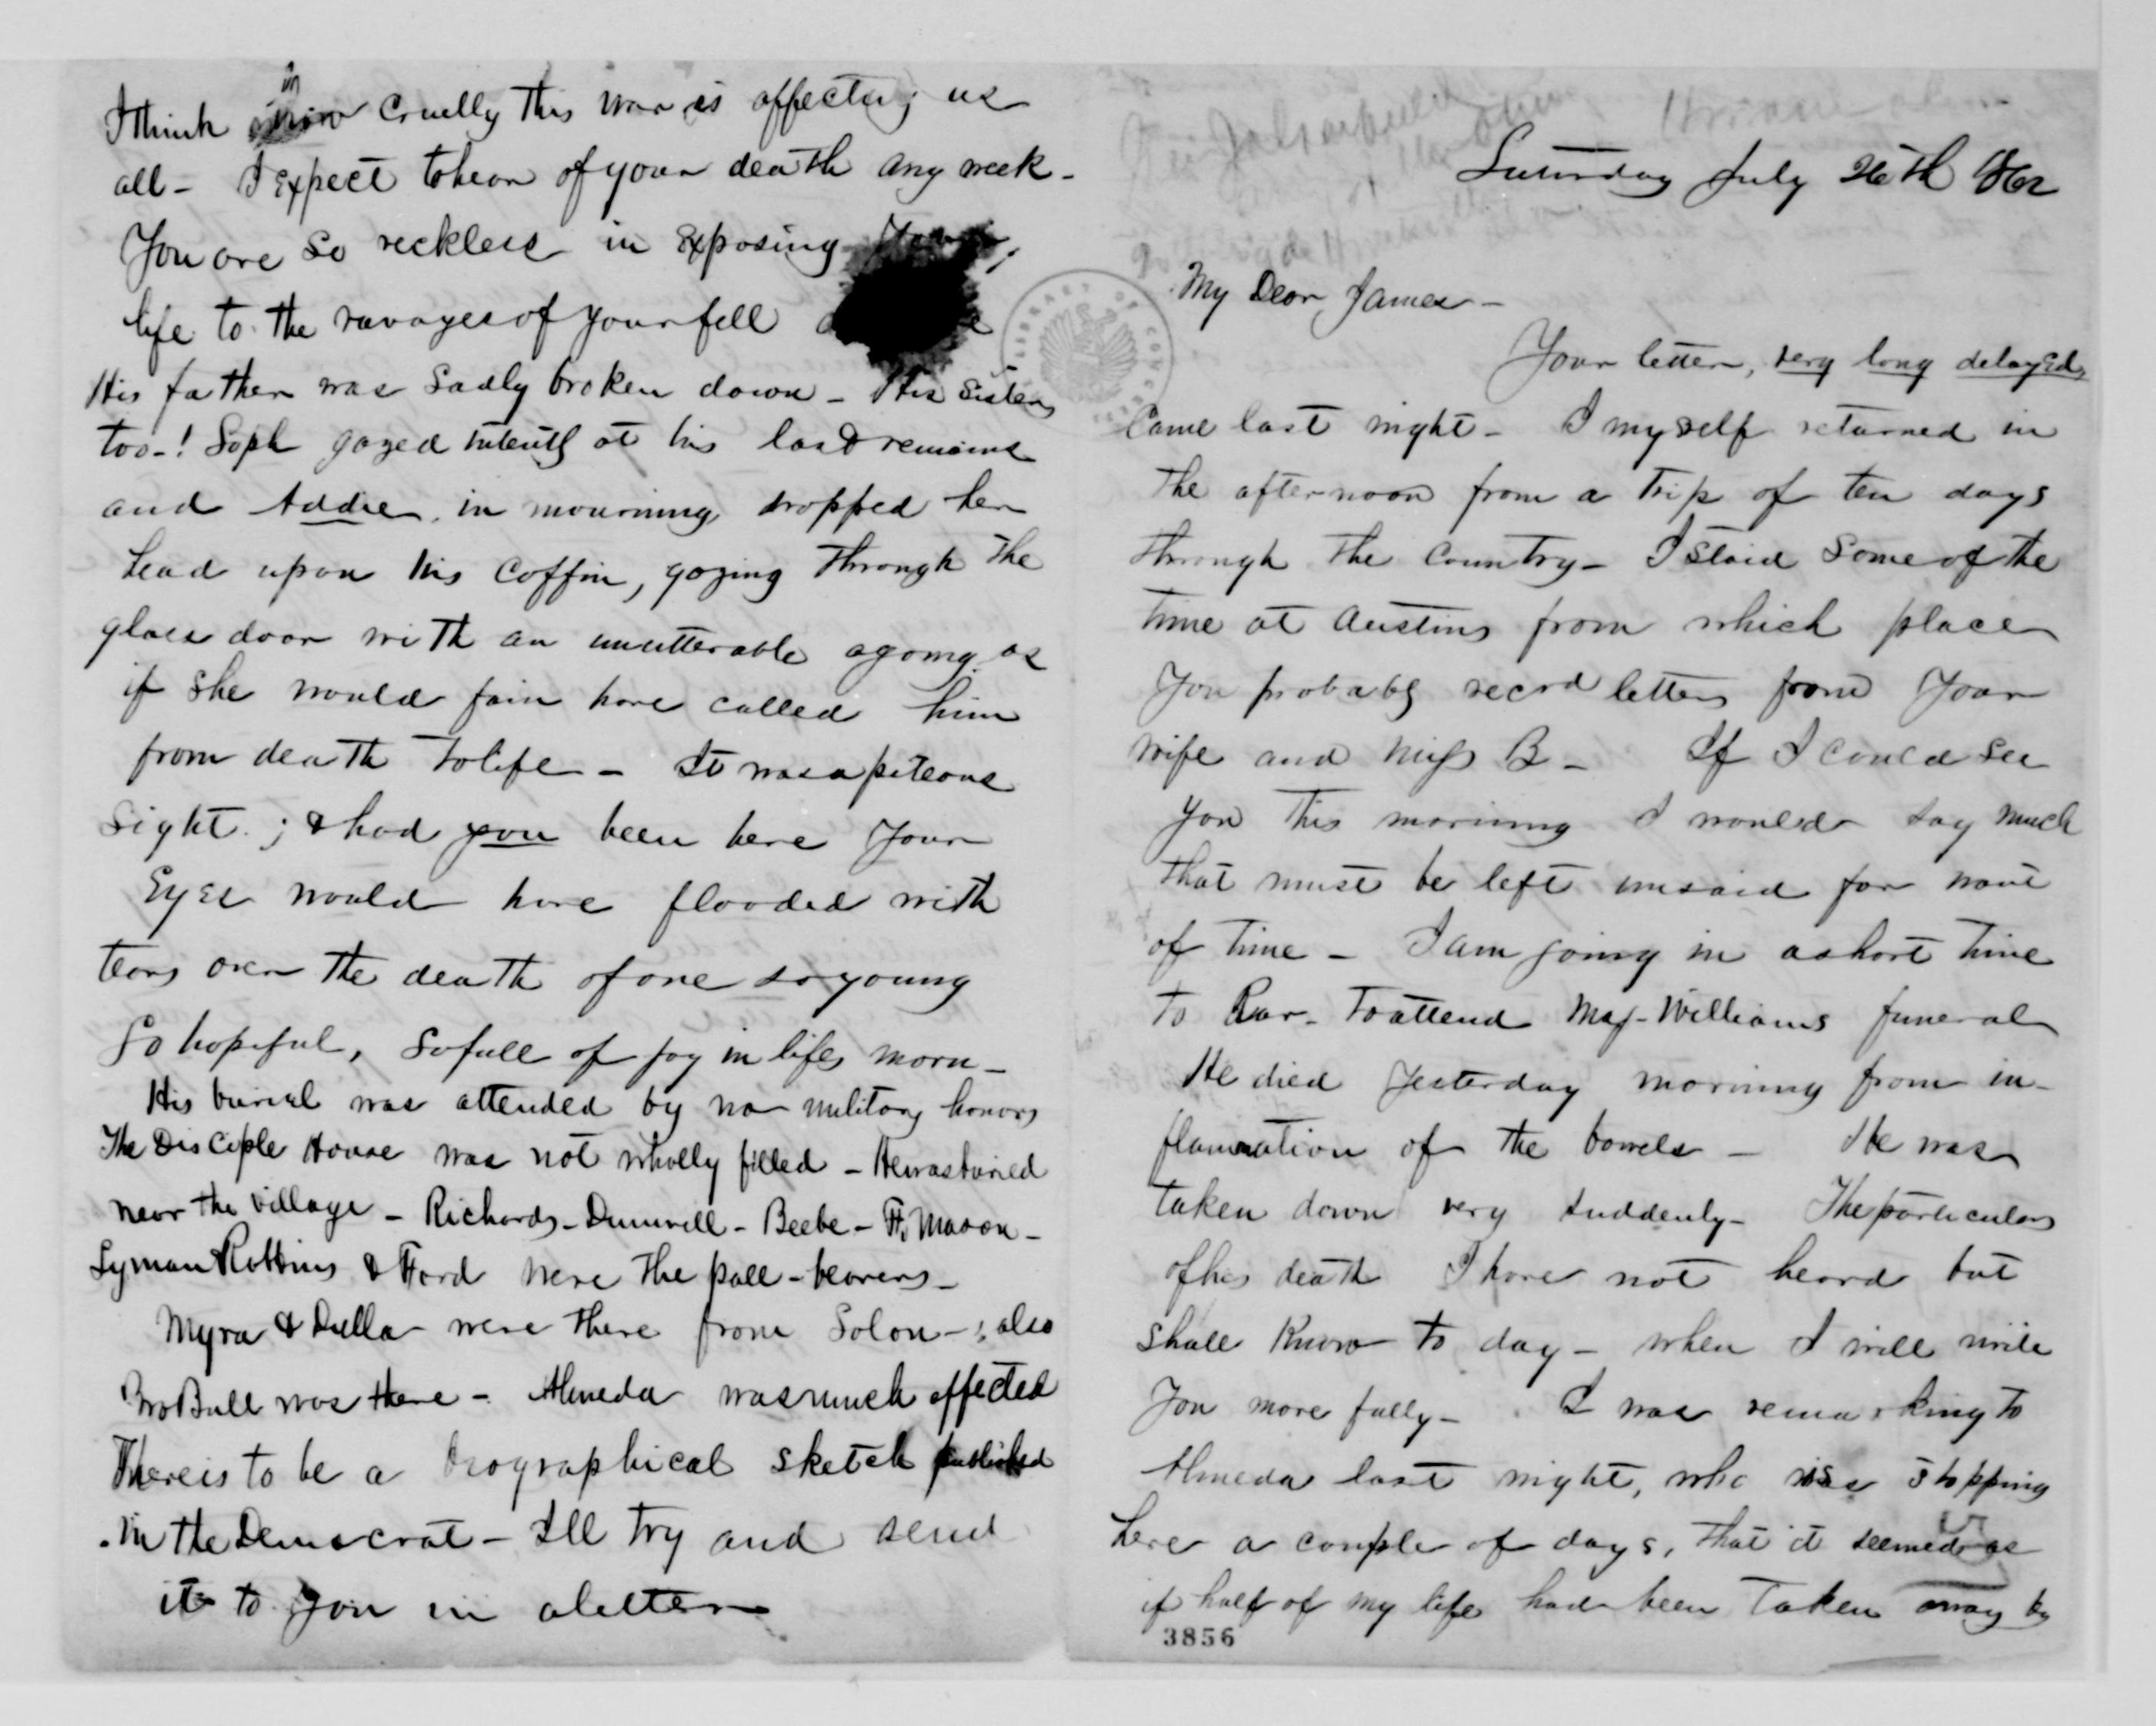 I think how cruelly this war is affecting us
all - I expect to hear of your death any week -
You are so reckless in exposing your
life to the ravages of your fell
His father was sadly broken down - His sisters
too - ! Soph gazed intently at his last remains
and Addie, in mourning, dropped her
head upon his coffin, gazing through the
glass door with an unutterable agony as
if she would fain have called him
from death to life - It was a piteous
sight ; & had you been here your
Eyes would have flooded with
tears over the death of one so young
So hopeful, so full of joy in lifes morn -
His burial was attended by no military honors
The Disciple House was not wholly filled - He was buried
near the village - Richards - Dunwell - Beebe - F. Mason -
Lyman Robbins & Ford were the pall-bearers -
Myra & Della were there from Solon - ; also
Bro Ball was there - Almeda was much affected
There is to be a biographical sketch published
in the Democrat - Ill try and send
it to you in a letter
Saturday July 26th 1862
My Dear James -
Your letter, very long delayed,
Came last night - I myself returned in
the afternoon from a trip of ten days
through the Country - I staid some of the
time at Austins from which place
You probably recvd letters from Your
wife and Miss B - If I could see
you this morning I would say much
that must be left unsaid for want
of time - I am going in a short time
to Rav. to attend Maj - Williams funeral
He died yesterday morning from in-
flamation of the bowels - He was
taken down very suddenly - The particulars
of his death I have not heard but
shall know to day - when I will write
You more fully - I was remarking to
Almeda last night, who is stopping
here a couple of days, that it seemed as
if half of my life had been taken away by
3856
LIBRARY OF CONGRESS